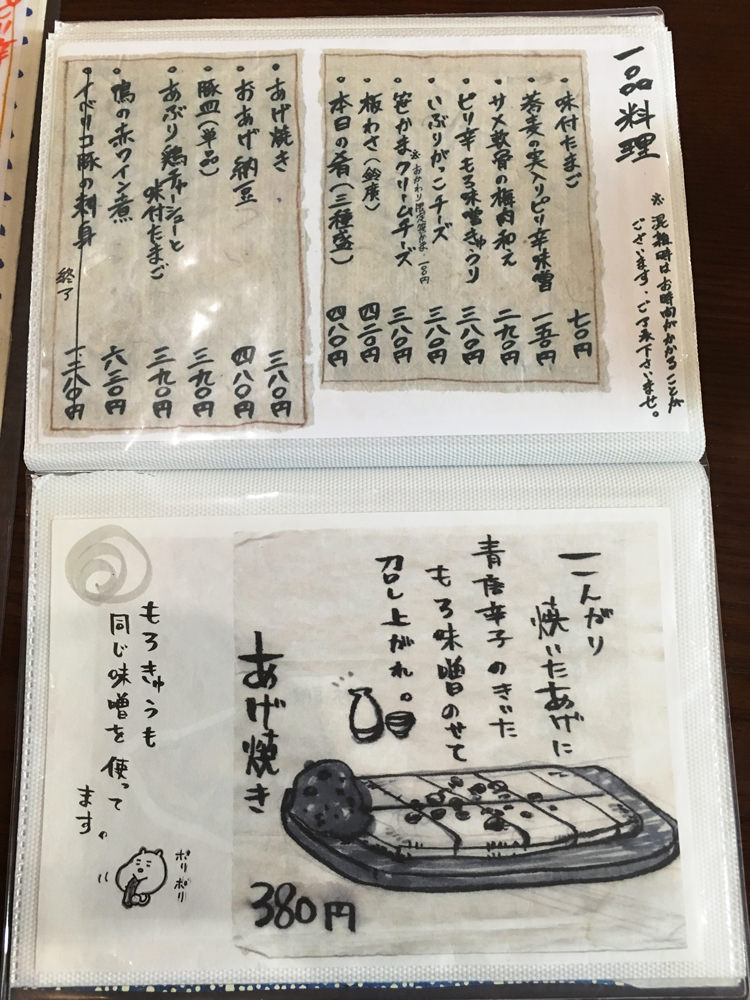 一品料理
※混雑時はお時間がかかることが
ございます。ご了承下さいませ。
・味付たまご 七〇円
・蕎麦の実入りピリ辛味噌 一五〇円
・サメ軟骨の梅肉和え 二九〇円
・ピリ辛もろ味噌きゅうり 三八〇円
・いぶりがっこチーズ 三八〇円
・笹かまクリームチーズ 三八〇円
※おかわり限定笹かま 一八〇円
・板わさ(鈴廣) 四二〇円
・本日の肴(三種盛) 四八〇円
・あげ焼き 三八〇円
・おあげ納豆 四八〇円
・豚皿(単品) 三九〇円
・あぶり鶏チャーシューと
味付たまご 三九〇円
・鴨の赤ワイン煮 六三〇円
・イベリコ豚の刺身
終了
こんがり
焼いたあげに
青唐辛子のきいた
もろ味噌のせて
召し上がれ。
あげ焼き
380円
もろきゅうも
同じ味噌を使って
ます。
ポリ
ポリ